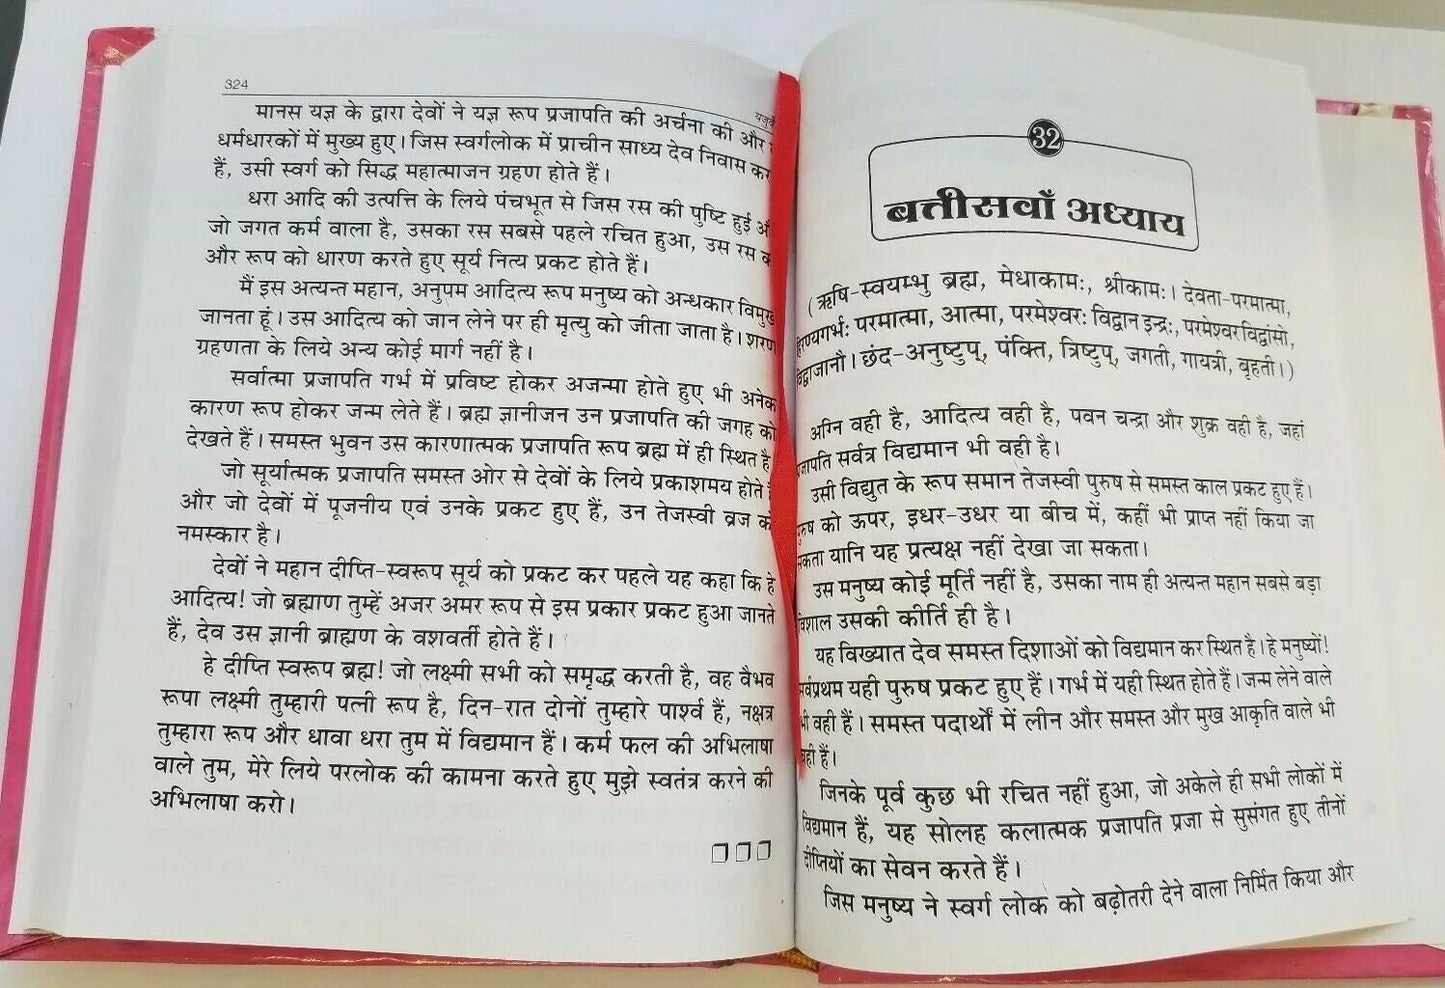 324
यजुर्वे
मानस यज्ञ के द्वारा देवों ने यज्ञ रूप प्रजापति की अर्चना की और
धर्मधारकों में मुख्य हुए। जिस स्वर्गलोक में प्राचीन साध्य देव निवास कर
हैं, उसी स्वर्ग को सिद्ध महात्माजन ग्रहण होते हैं।
धरा आदि की उत्पत्ति के लिये पंचभूत से जिस रस की पुष्टि हुई औ
जो जगत कर्म वाला है, उसका रस सबसे पहले रचित हुआ, उस रस क
और रूप को धारण करते हुए सूर्य नित्य प्रकट होते हैं।
मैं इस अत्यन्त महान, अनुपम आदित्य रूप मनुष्य को अन्धकार विमुख
जानता हूं। उस आदित्य को जान लेने पर ही मृत्यु को जीता जाता है। शरण
ग्रहणता के लिये अन्य कोई मार्ग नहीं है।
सर्वात्मा प्रजापति गर्भ में प्रविष्ट होकर अजन्मा होते हुए भी अनेक
कारण रूप होकर जन्म लेते हैं। ब्रह्म ज्ञानीजन उन प्रजापति की जगह को
देखते हैं। समस्त भुवन उस कारणात्मक प्रजापति रूप ब्रह्म में ही स्थित है
जो सूर्यात्मक प्रजापति समस्त ओर से देवों के लिये प्रकाशमय होते
और जो देवों में पूजनीय एवं उनके प्रकट हुए हैं, उन तेजस्वी ब्रज को
नमस्कार है।
देवों ने महान दीप्ति-स्वरूप सूर्य को प्रकट कर पहले यह कहा कि हे
आदित्य! जो ब्रह्माण तुम्हें अजर अमर रूप से इस प्रकार प्रकट हुआ जानते
हैं, देव उस ज्ञानी ब्राह्मण के वशवर्ती होते हैं।
हे दीप्ति स्वरूप ब्रह्म! जो लक्ष्मी सभी को समृद्ध करती है, वह वैभव
रूपा लक्ष्मी तुम्हारी पत्नी रूप है, दिन-रात दोनों तुम्हारे पार्श्व हैं, नक्षत्र
तुम्हारा रूप और धावा धरा तुम में विद्यमान हैं। कर्म फल की अभिलाषा
वाले तुम, मेरे लिये परलोक की कामना करते हुए मुझे स्वतंत्र करने की
अभिलाषा करो।
32
बत्तीसवाँ अध्याय
(ऋषि-स्वयम्भु ब्रह्म, मेधाकामः, श्रीकामः। देवता-परमात्मा,
हिरण्यगर्भः परमात्मा, आत्मा, परमेश्वरः विद्वान इन्द्रः, परमेश्वर विद्वांसो,
विद्वाजानौ। छंद-अनुष्टुप्, पंक्ति, त्रिष्टुप्, जगती, गायत्री, बृहती।)
अग्नि वही है, आदित्य वही है, पवन चन्द्रा और शुक्र वही है, जहां
प्रजापति सर्वत्र विद्यमान भी वही है।
उसी विद्युत के रूप समान तेजस्वी पुरुष से समस्त काल प्रकट हुए हैं।
पुरुष को ऊपर, इधर-उधर या बीच में, कहीं भी प्राप्त नहीं किया जा
सकता यानि यह प्रत्यक्ष नहीं देखा जा सकता।
उस मनुष्य कोई मूर्ति नहीं है, उसका नाम ही अत्यन्त महान सबसे बड़ा
विशाल उसकी कीर्ति ही है।
यह विख्यात देव समस्त दिशाओं को विद्यमान कर स्थित है। हे मनुष्यों!
सर्वप्रथम यही पुरुष प्रकट हुए हैं। गर्भ में यही स्थित होते हैं। जन्म लेने वाले
भी वही हैं। समस्त पदार्थों में लीन और समस्त और मुख आकृति वाले भी
वही हैं।
जिनके पूर्व कुछ भी रचित नहीं हुआ, जो अकेले ही सभी लोकों में
विद्यमान हैं, यह सोलह कलात्मक प्रजापति प्रजा से सुसंगत हुए तीनों
दीप्तियों का सेवन करते हैं।
जिस मनुष्य ने स्वर्ग लोक को बढ़ोतरी देने वाला निर्मित किया और